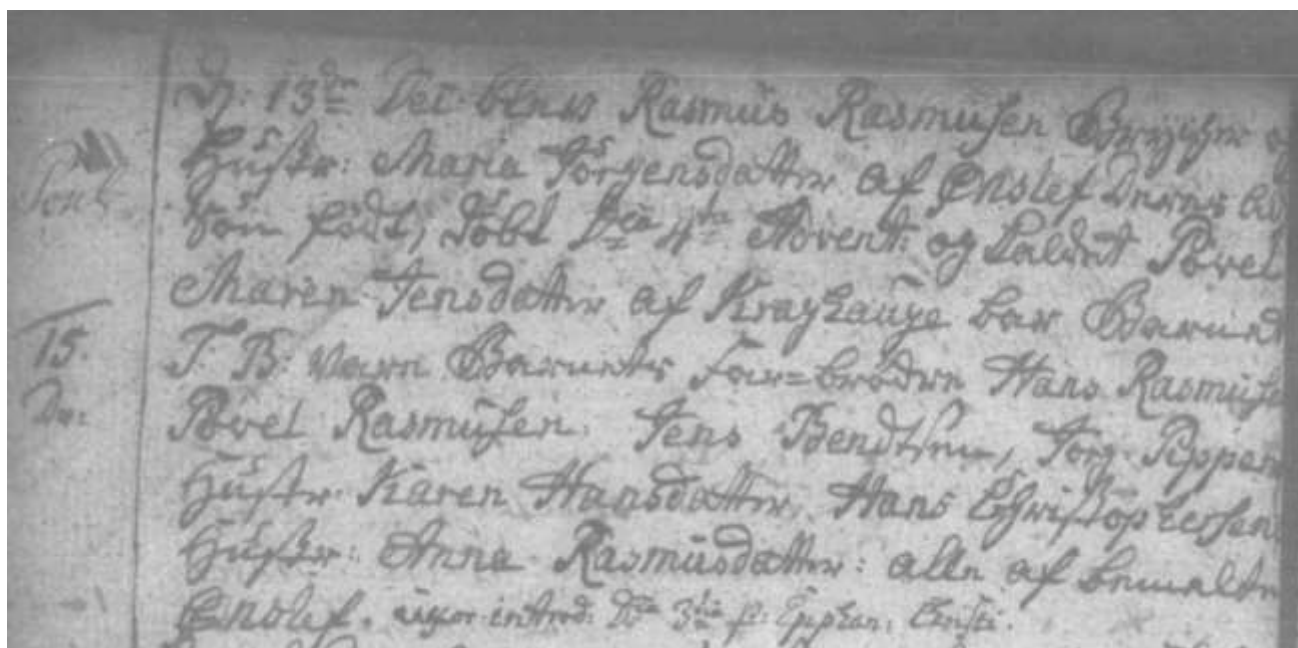 D: 13de Dec: blev Rasmus Rasmusen
Hustr: Maria Jörgensdatter af Enslef Deres
Sön födt, döbt Dca 4ta Advent: og kaldet Povel
Maren Jensdatter af Kraghauge bar Barnet
15. T. B: Vare Barnets Far=brödre Hans Rasmuse
Do: Povel Rasmusen. Jens Bendtsen, Jörg:
Hustr: Karen Hansdatter, Hans Christophersen
Hustr: Anna Rasmusdatter: alle af bemelte
Enslef. uxor introd: Dca 3tia p: Epphan: Christi.